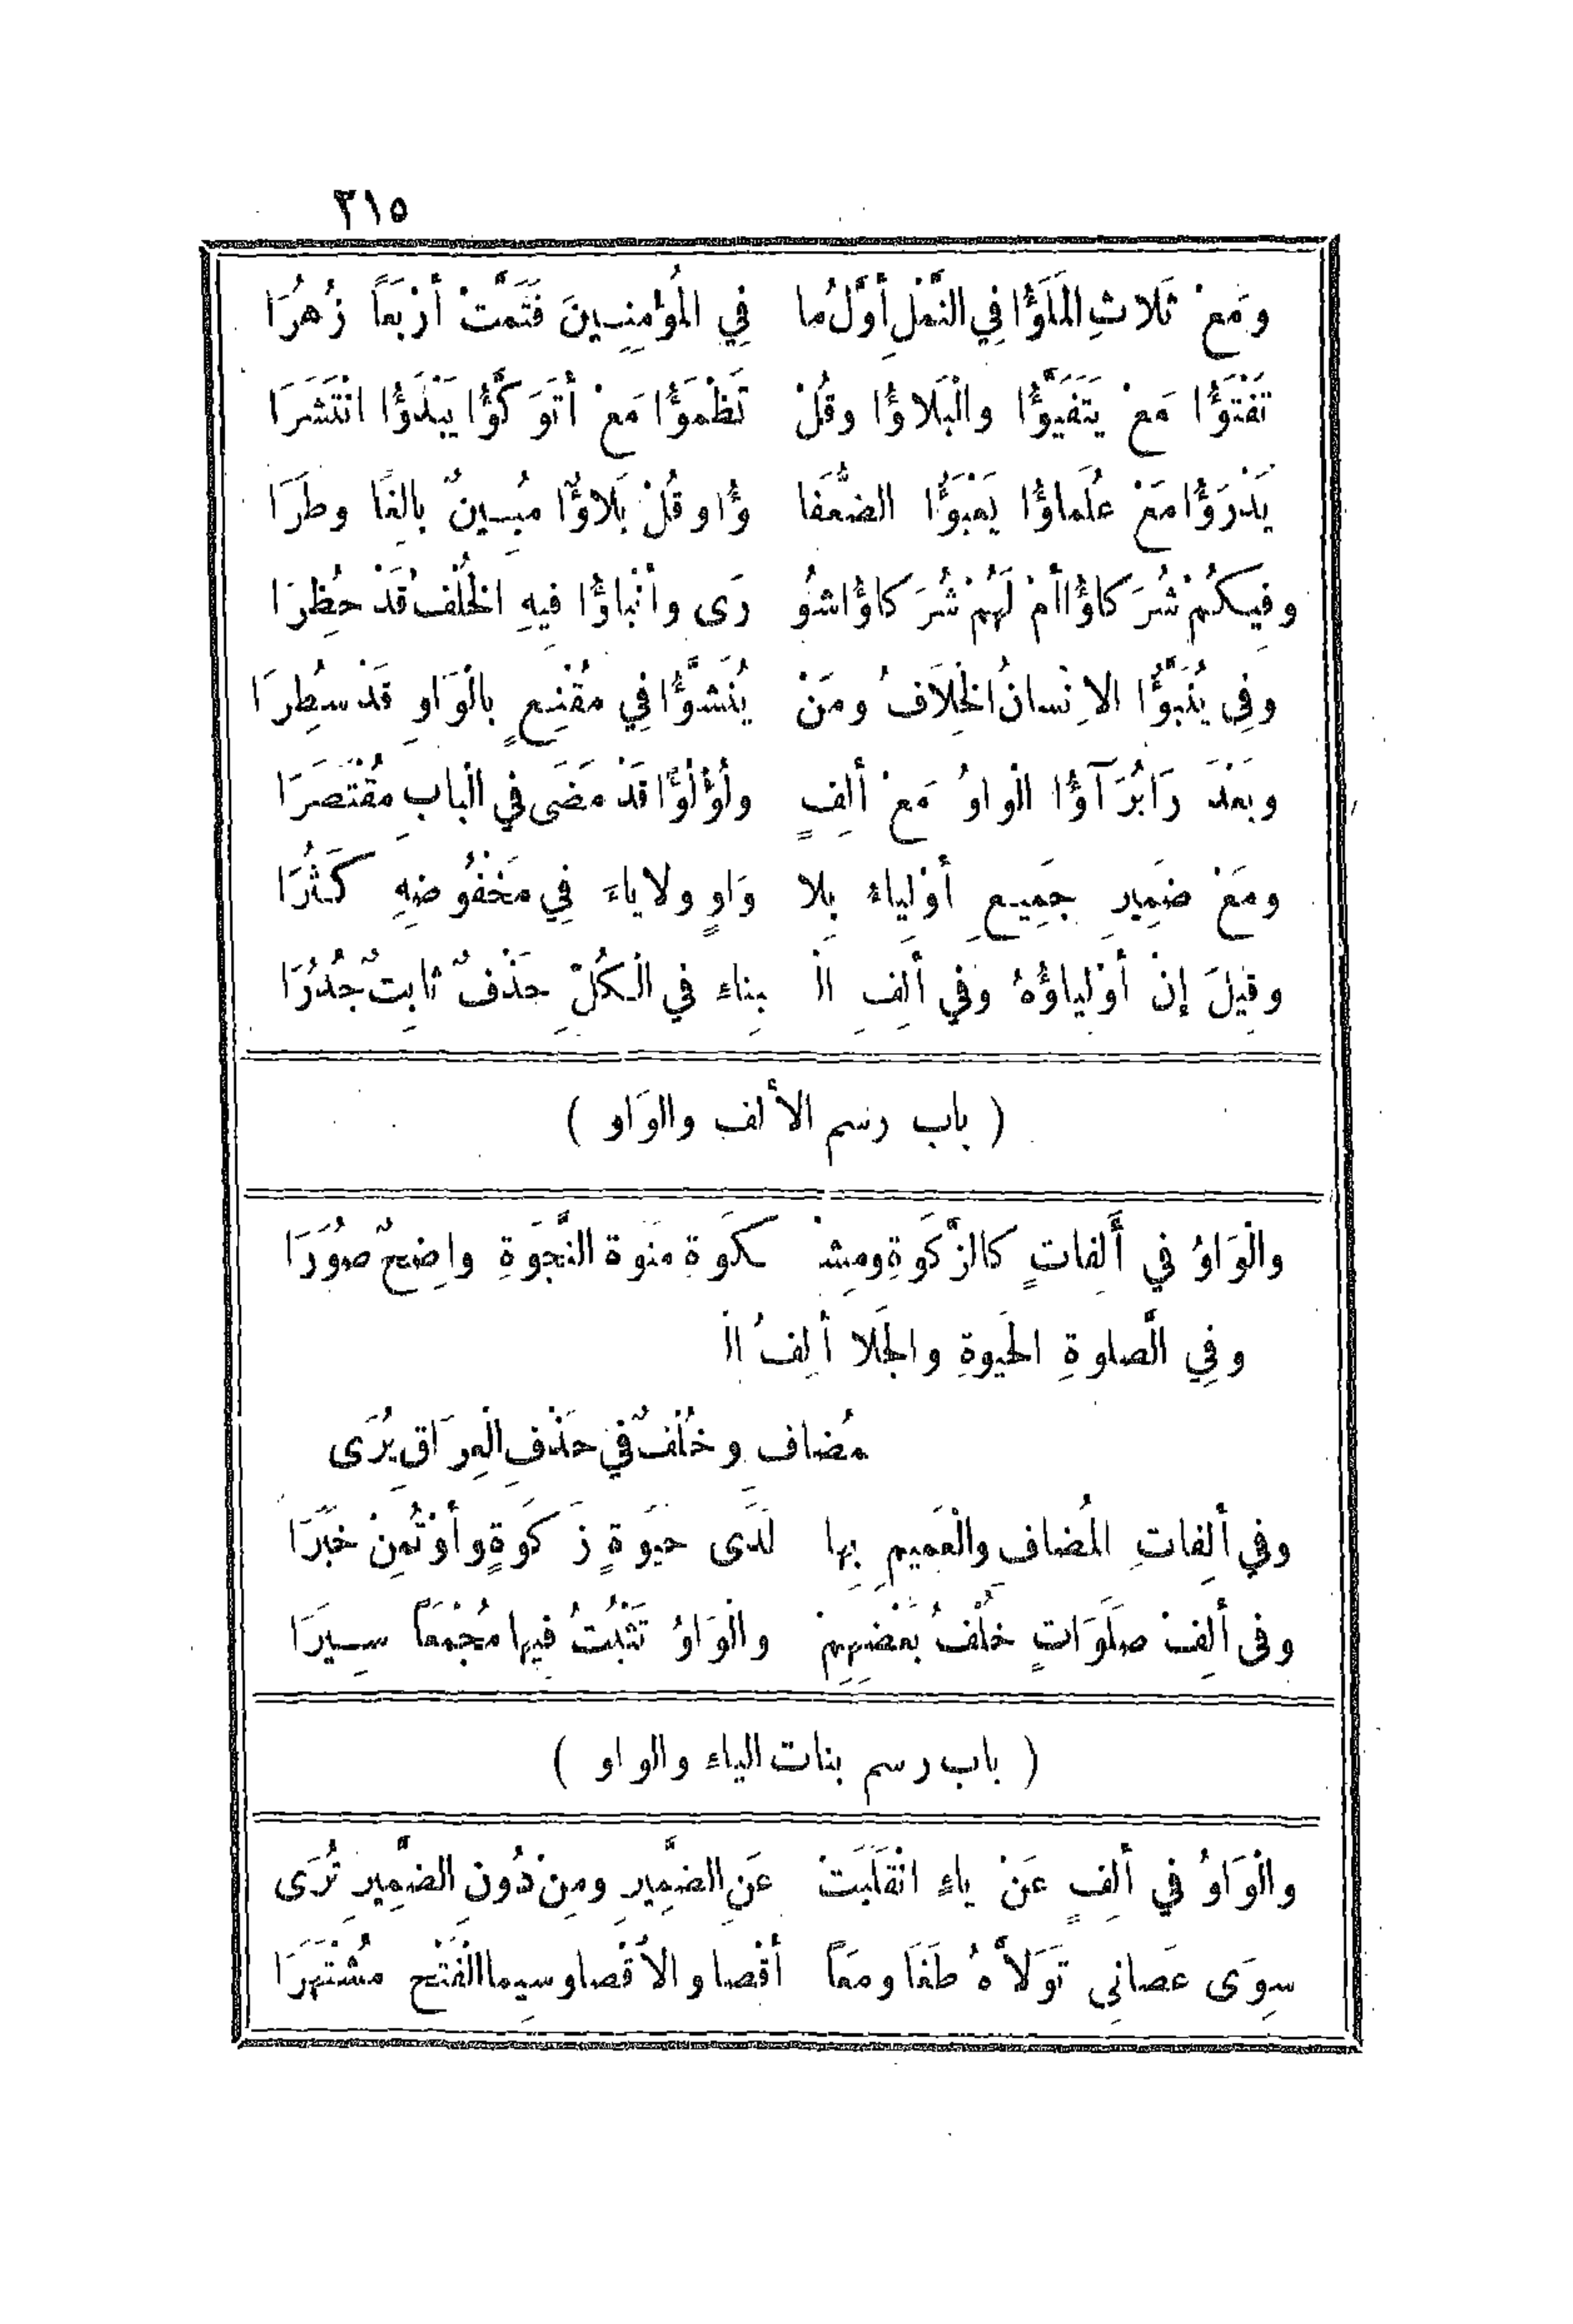 ٣١٥
ومَعْ ثَلاثِ المَلَؤُا فِي النَّمْلِ أوَّلُ ما فِي المُؤْمِنِينَ فَتَمَّتْ أَرْبَعاً زُهُرَا
تَفْتَؤُا مَعْ يَتَفَيَّؤُا والْبَلاؤُا وقُلْ تَظْمَؤُا مَعْ أتَوَكَّؤُا يَبْدَؤُا انْتَشَرَا
يَدْرَؤُا مَعْ عُلَماؤُا يَعْبَؤُا الضُّعَفَا ؤُا وقُلْ بَلاؤٌا مُبِينٌ بالِغًا وطَرَا
وفِيكُمْ شُرَكاؤُا أَمْ لَهُمْ شُرَكاؤُا شُو رَى وأنْباؤُا فِيهِ الخُلْفُ قَدْ حُظِرَا
وفِي يُنَبَّؤُا الاِنْسانُ الخِلاَفُ ومَنْ يُنَشَّؤُا فِي مُقْنِعٍ بالْوَاوِ قَدْ سُطِرَا
وبَعْدَ رَا بُرَآؤُا الْواوُ مَعْ ألِفٍ ولُؤْلُؤًا قَدْ مَضَى فِي الْبابِ مُقْتَصَرَا
ومَعْ ضَمِيرِ جَمِيعٍ أوْلِياءُ بِلا وَاوٍ ولا ياءَ فِي مَخْفُوضِهِ كَثُرَا
وقِيلَ إنْ أوْلِياؤُهُ وفي ألِفِ الْ بِناءِ في الْكُلِّ حَذْفٌ ثابِتٌ جُدُرَا
( باب رسم الألف والوَاو )
والْوَاوُ في أَلِفاتٍ كالزَّكَوةِ ومِشْ كَوةِ مَنَوة النَّجَوةِ واضِحٌ صُوَرَا
وفِي الصَّلوةِ الحَيوةِ والجَلا ألِفُ الْ
مُضاف وخُلْفٌ في حَذْفِ الْعِرَاقِ يُرَى
وفي ألِفاتِ المُضافِ والْعَمِيمِ بِها لَدَى حَيَوةٍ زَكَوةٍ وأوْتُمِنْ خَبَرَا
وفى ألِفْ صلَوَاتٍ خُلْفُ بَعْضِهِمْ والْوَاوُ تَثْبُتُ فِيها مُجْمَعاً سِيَرَا
( باب رسم بنات الياء والواو )
والْوَاوُ في ألِفٍ عَنْ ياءٍ انْقَلَبَتْ عَنِ الضَّمِيرِ ومِنْ دُونِ الضَّمِيرِ تُرَى
سِوَى عَصانِي تَوَلاَّهُ طَغَا ومَعاً أقْصا والاَقْصا وسِيما الْفَتْحِ مُشْتَهَرَا